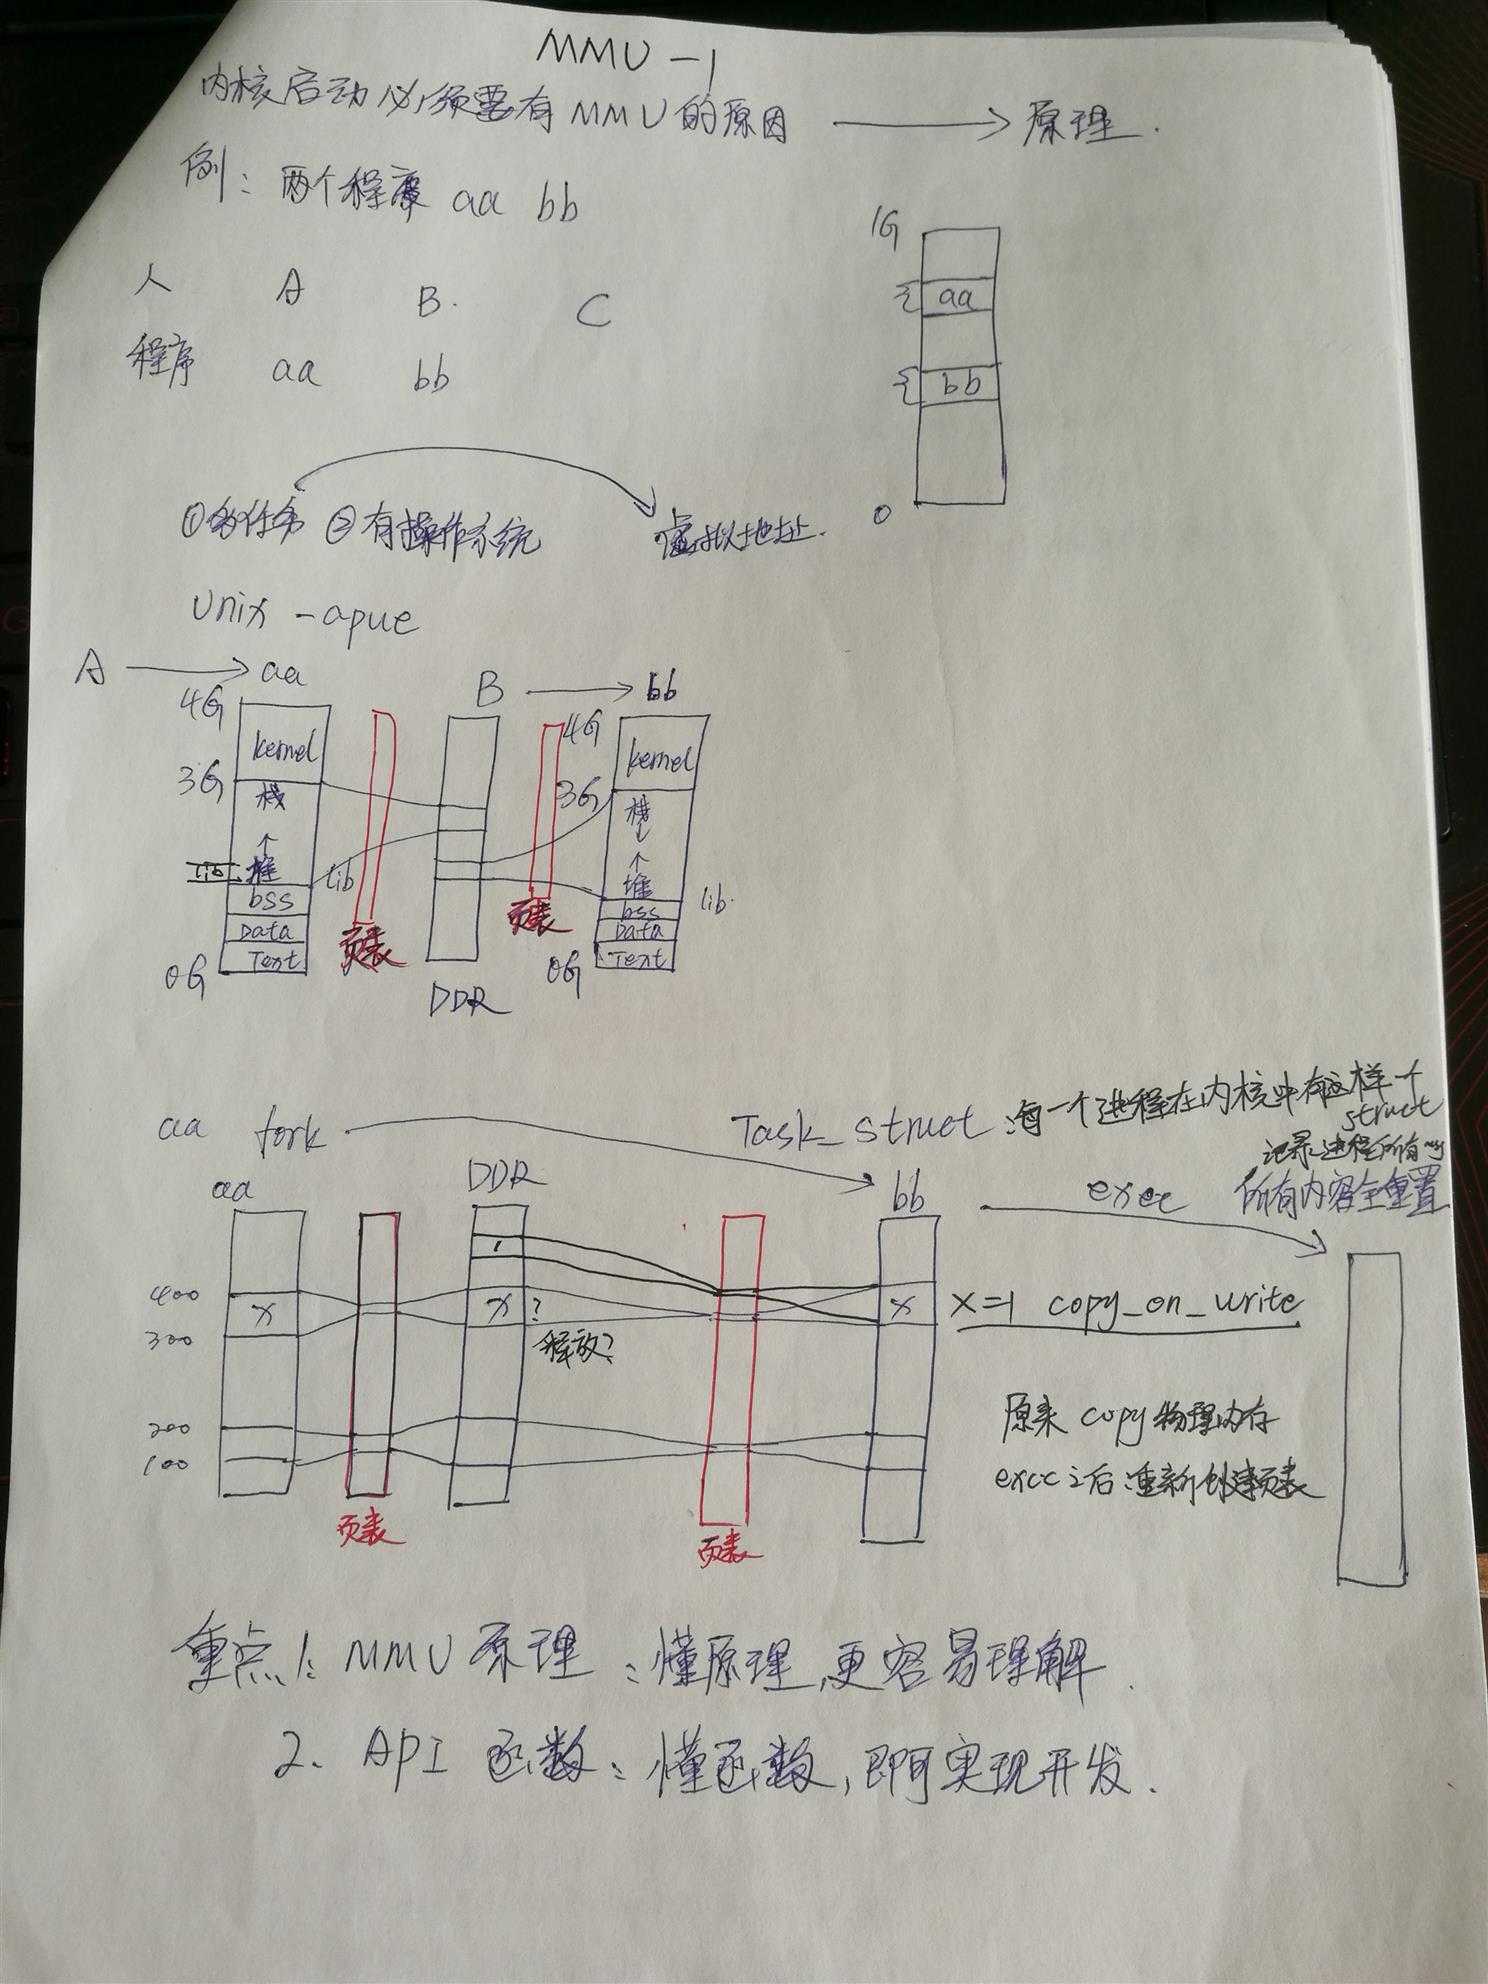 MMU-1
内核启动必须要有MMU的原因 → 原理.
例: 两个程序 aa bb
人 A B. C
程序 aa bb
1G
aa
bb
0
①多任务 ②有操作系统 虚拟地址.
Unix - apue
A → aa B → bb
4G kernel 4G kernel
3G 栈 3G 栈
↑ ↑
lib 堆 lib 堆
bss bss lib.
Data Data
0G Text 页表 DDR 页表 0G Text
aa fork Task_struct :每一个进程在内核中有这样一个
struct
记录进程所有的
aa DDR bb exec 所有内容全重置
1
400
x x ? x x=1 copy_on_write
300 释放?
200 原来 copy物理内存
100 exec之后:重新创建页表
页表 页表
重点1: MMU 原理 : 懂原理,更容易理解.
2. API 函数: 懂函数,即可实现开发.